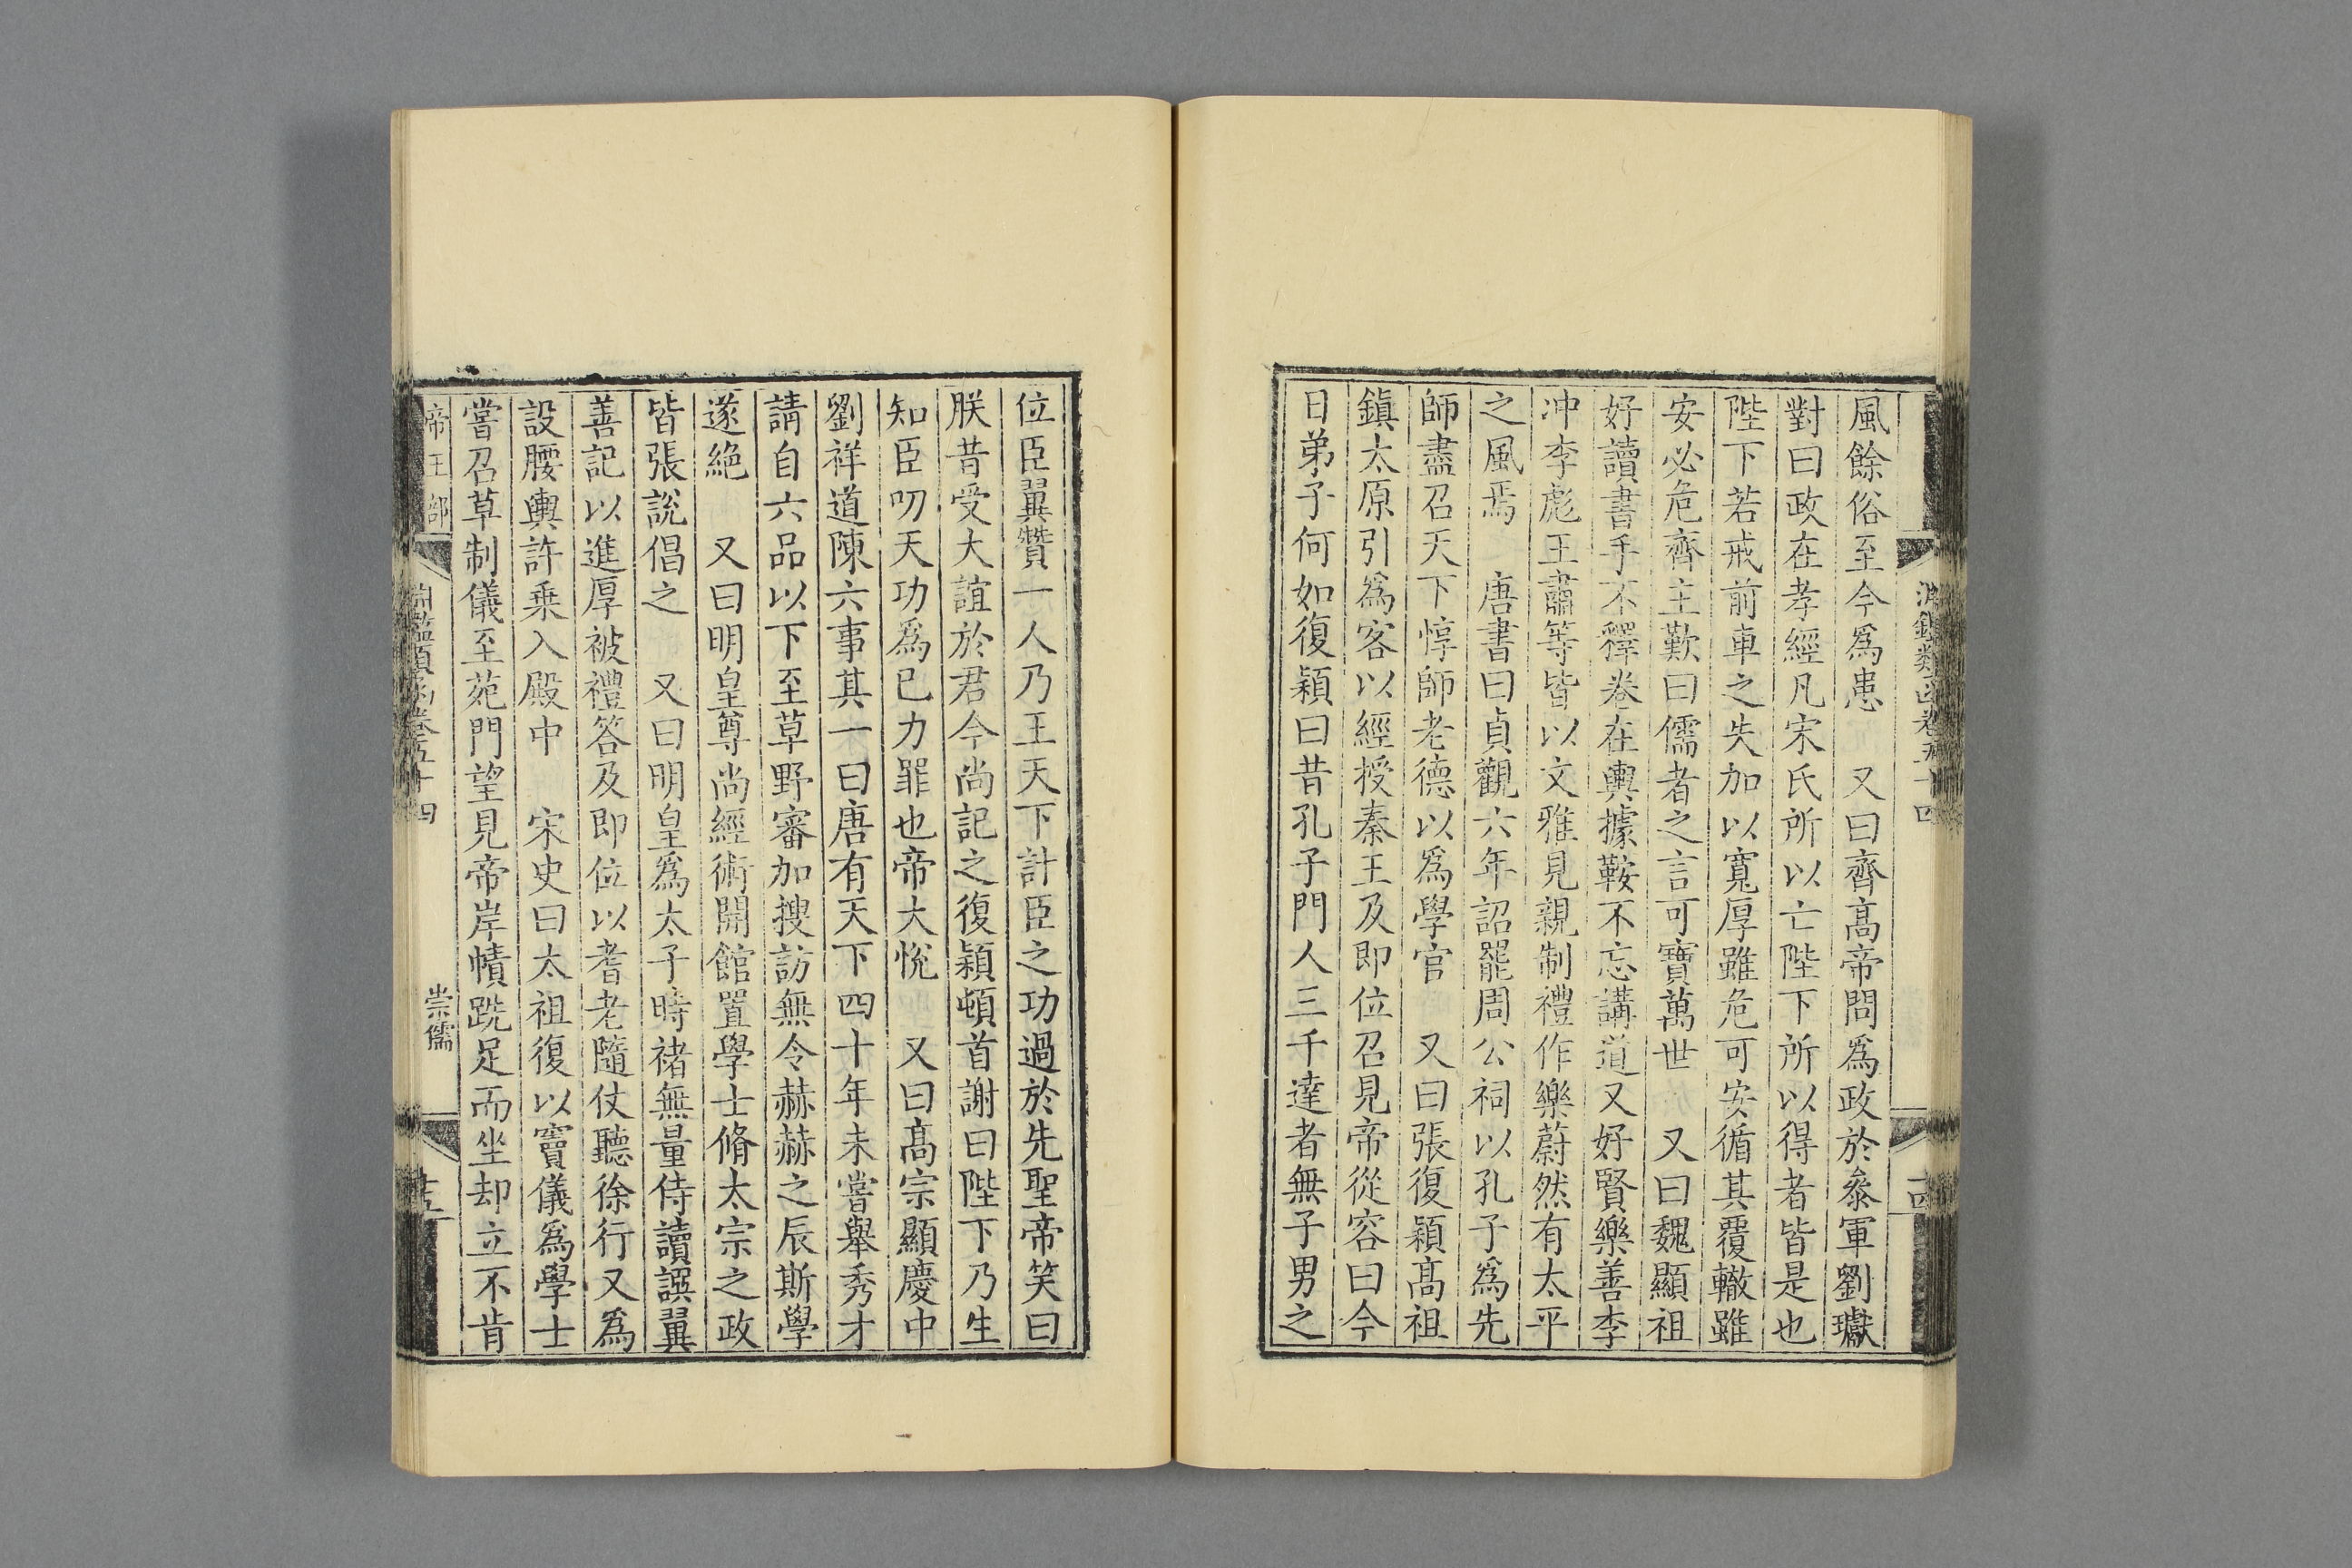 淵鑑類函卷五十四
十四
風餘俗至今爲患　又曰齊高帝問爲政於叅軍劉瓛
對曰政在孝經凡宋氏所以亡陛下所以得者皆是也
陛下若戒前車之失加以寬厚雖危可安循其覆轍雖
安必危齊主歎曰儒者之言可寶萬世　又曰魏顯祖
好讀書手不釋卷在輿據鞍不忘講道又好賢樂善李
冲李彪王肅等皆以文雅見親制禮作樂蔚然有太平
之風焉　唐書曰貞觀六年詔罷周公祠以孔子爲先
師盡召天下惇師老德以爲學官　又曰張復穎高祖
鎮太原引爲客以經授秦王及即位召見帝從容曰今
日弟子何如復穎曰昔孔子門人三千達者無子男之
位臣翼贊一人乃王天下計臣之功過於先聖帝笑曰
朕昔受大誼於君今尚記之復穎頓首謝曰陛下乃生
知臣叨天功爲已力罪也帝大悅　又曰高宗顯慶中
劉祥道陳六事其一曰唐有天下四十年未嘗舉秀才
請自六品以下至草野審加搜訪無令赫赫之辰斯學
遂絕　又曰明皇尊尚經術開館置學士脩太宗之政
皆張說倡之　又曰明皇爲太子時褚無量侍讀譔翼
善記以進厚被禮答及即位以耆老隨仗聽徐行又爲
設腰輿許乗入殿中　宋史曰太祖復以竇儀爲學士
嘗召草制儀至苑門望見帝岸幘跣足而坐却立不肯
帝王部
淵鑑類函卷五十四
崇儒
十五